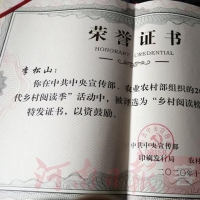 荣誉证书
HONORARY CREDENTIAL
李松山:
你在中共中央宣传部、农业农村部组织的2
代乡村阅读季”活动中,被评选为“乡村阅读榜
特发证书,以资鼓励。
中共中央宣传部
印刷发行局
二〇二〇年十